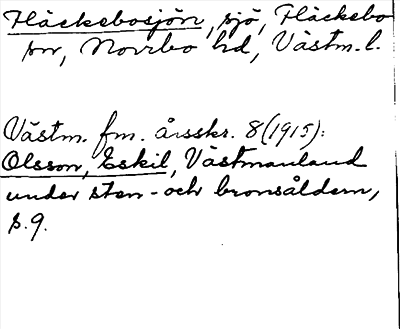 Fläckebosjön, sjö, Fläckebo
sn, Norrbo hd, Västm. l.
Västm. fm. årsskr. 8(1915):
Olsson, Eskil, Västmanland
under sten- och bronsåldern,
s. 9.